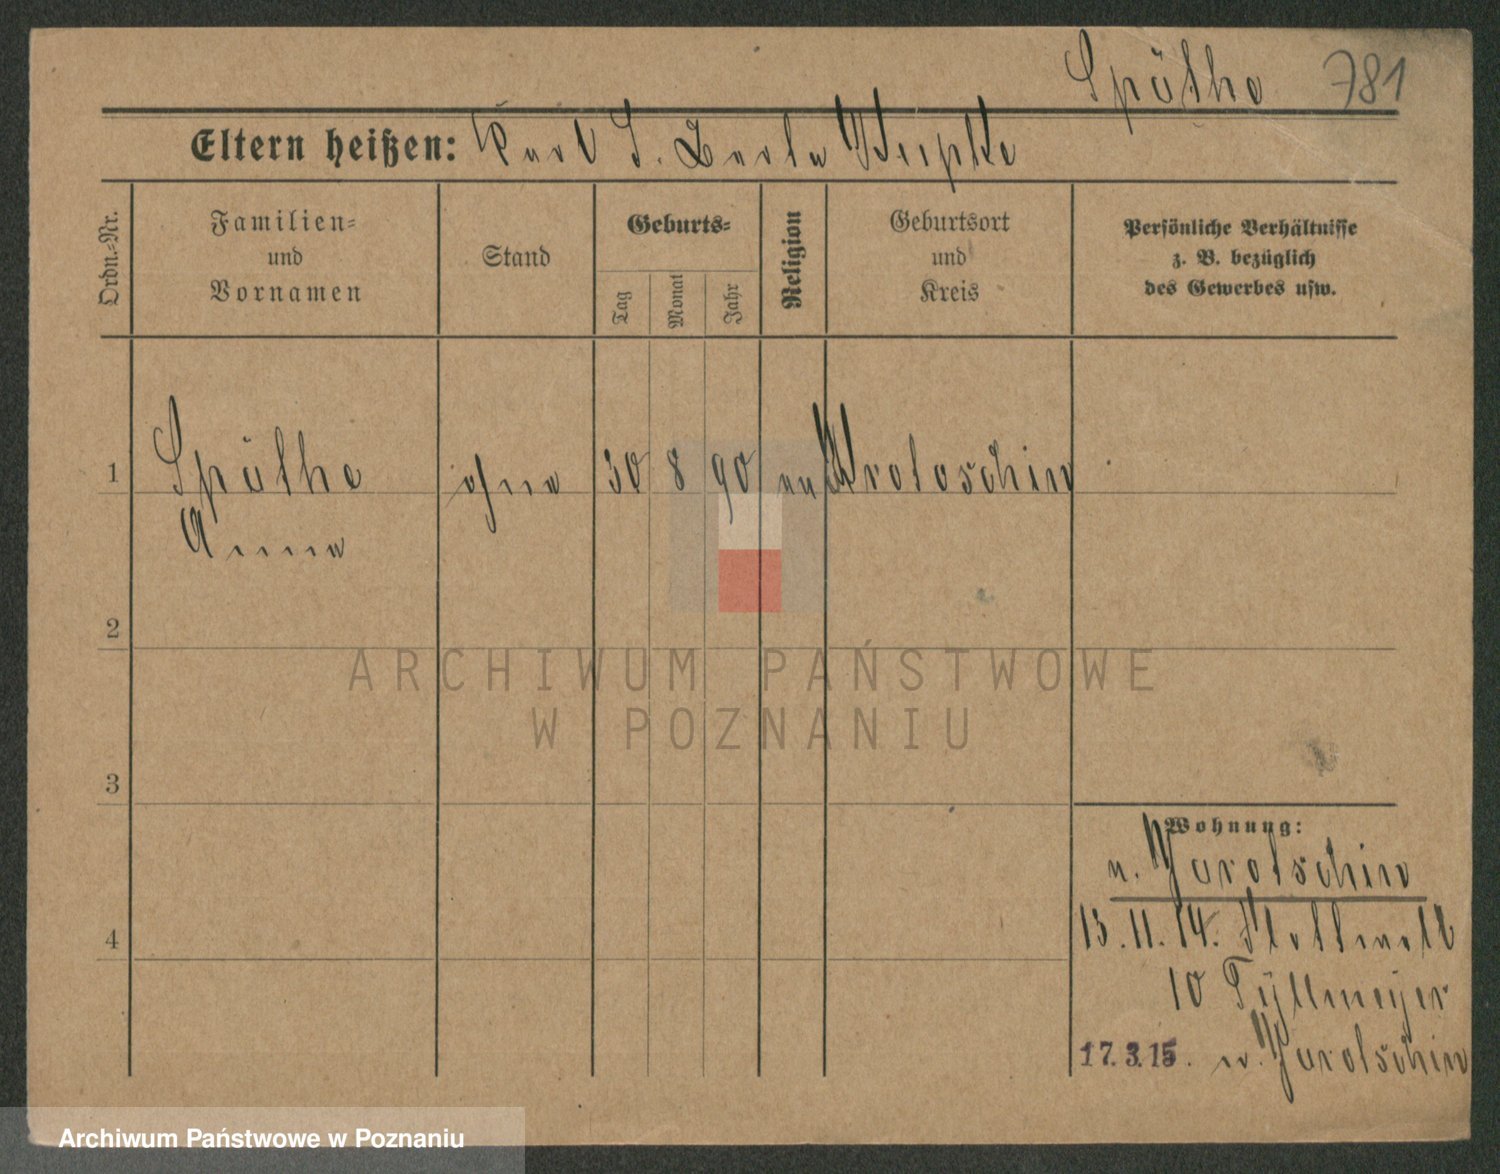 Späthe 781
Eltern heißen: Karl S.
Ordn.-Nr.
Familien-
und
Vornamen
Stand
Geburts-
Tag
Monat
Jahr
Religion
Geburtsort
und
Kreis
Persönliche Verhältnisse
z. B. bezüglich
des Gewerbes usw.
1 Späthe ohne 30 8 90 Krotoschin
Anna
2
3
4
Wohnung:
n. Jarotschin
13.11.14.
10
17.3.15. n. Jarotschin
ARCHIWUM PAŃSTWOWE
W POZNANIU
Archiwum Państwowe w Poznaniu